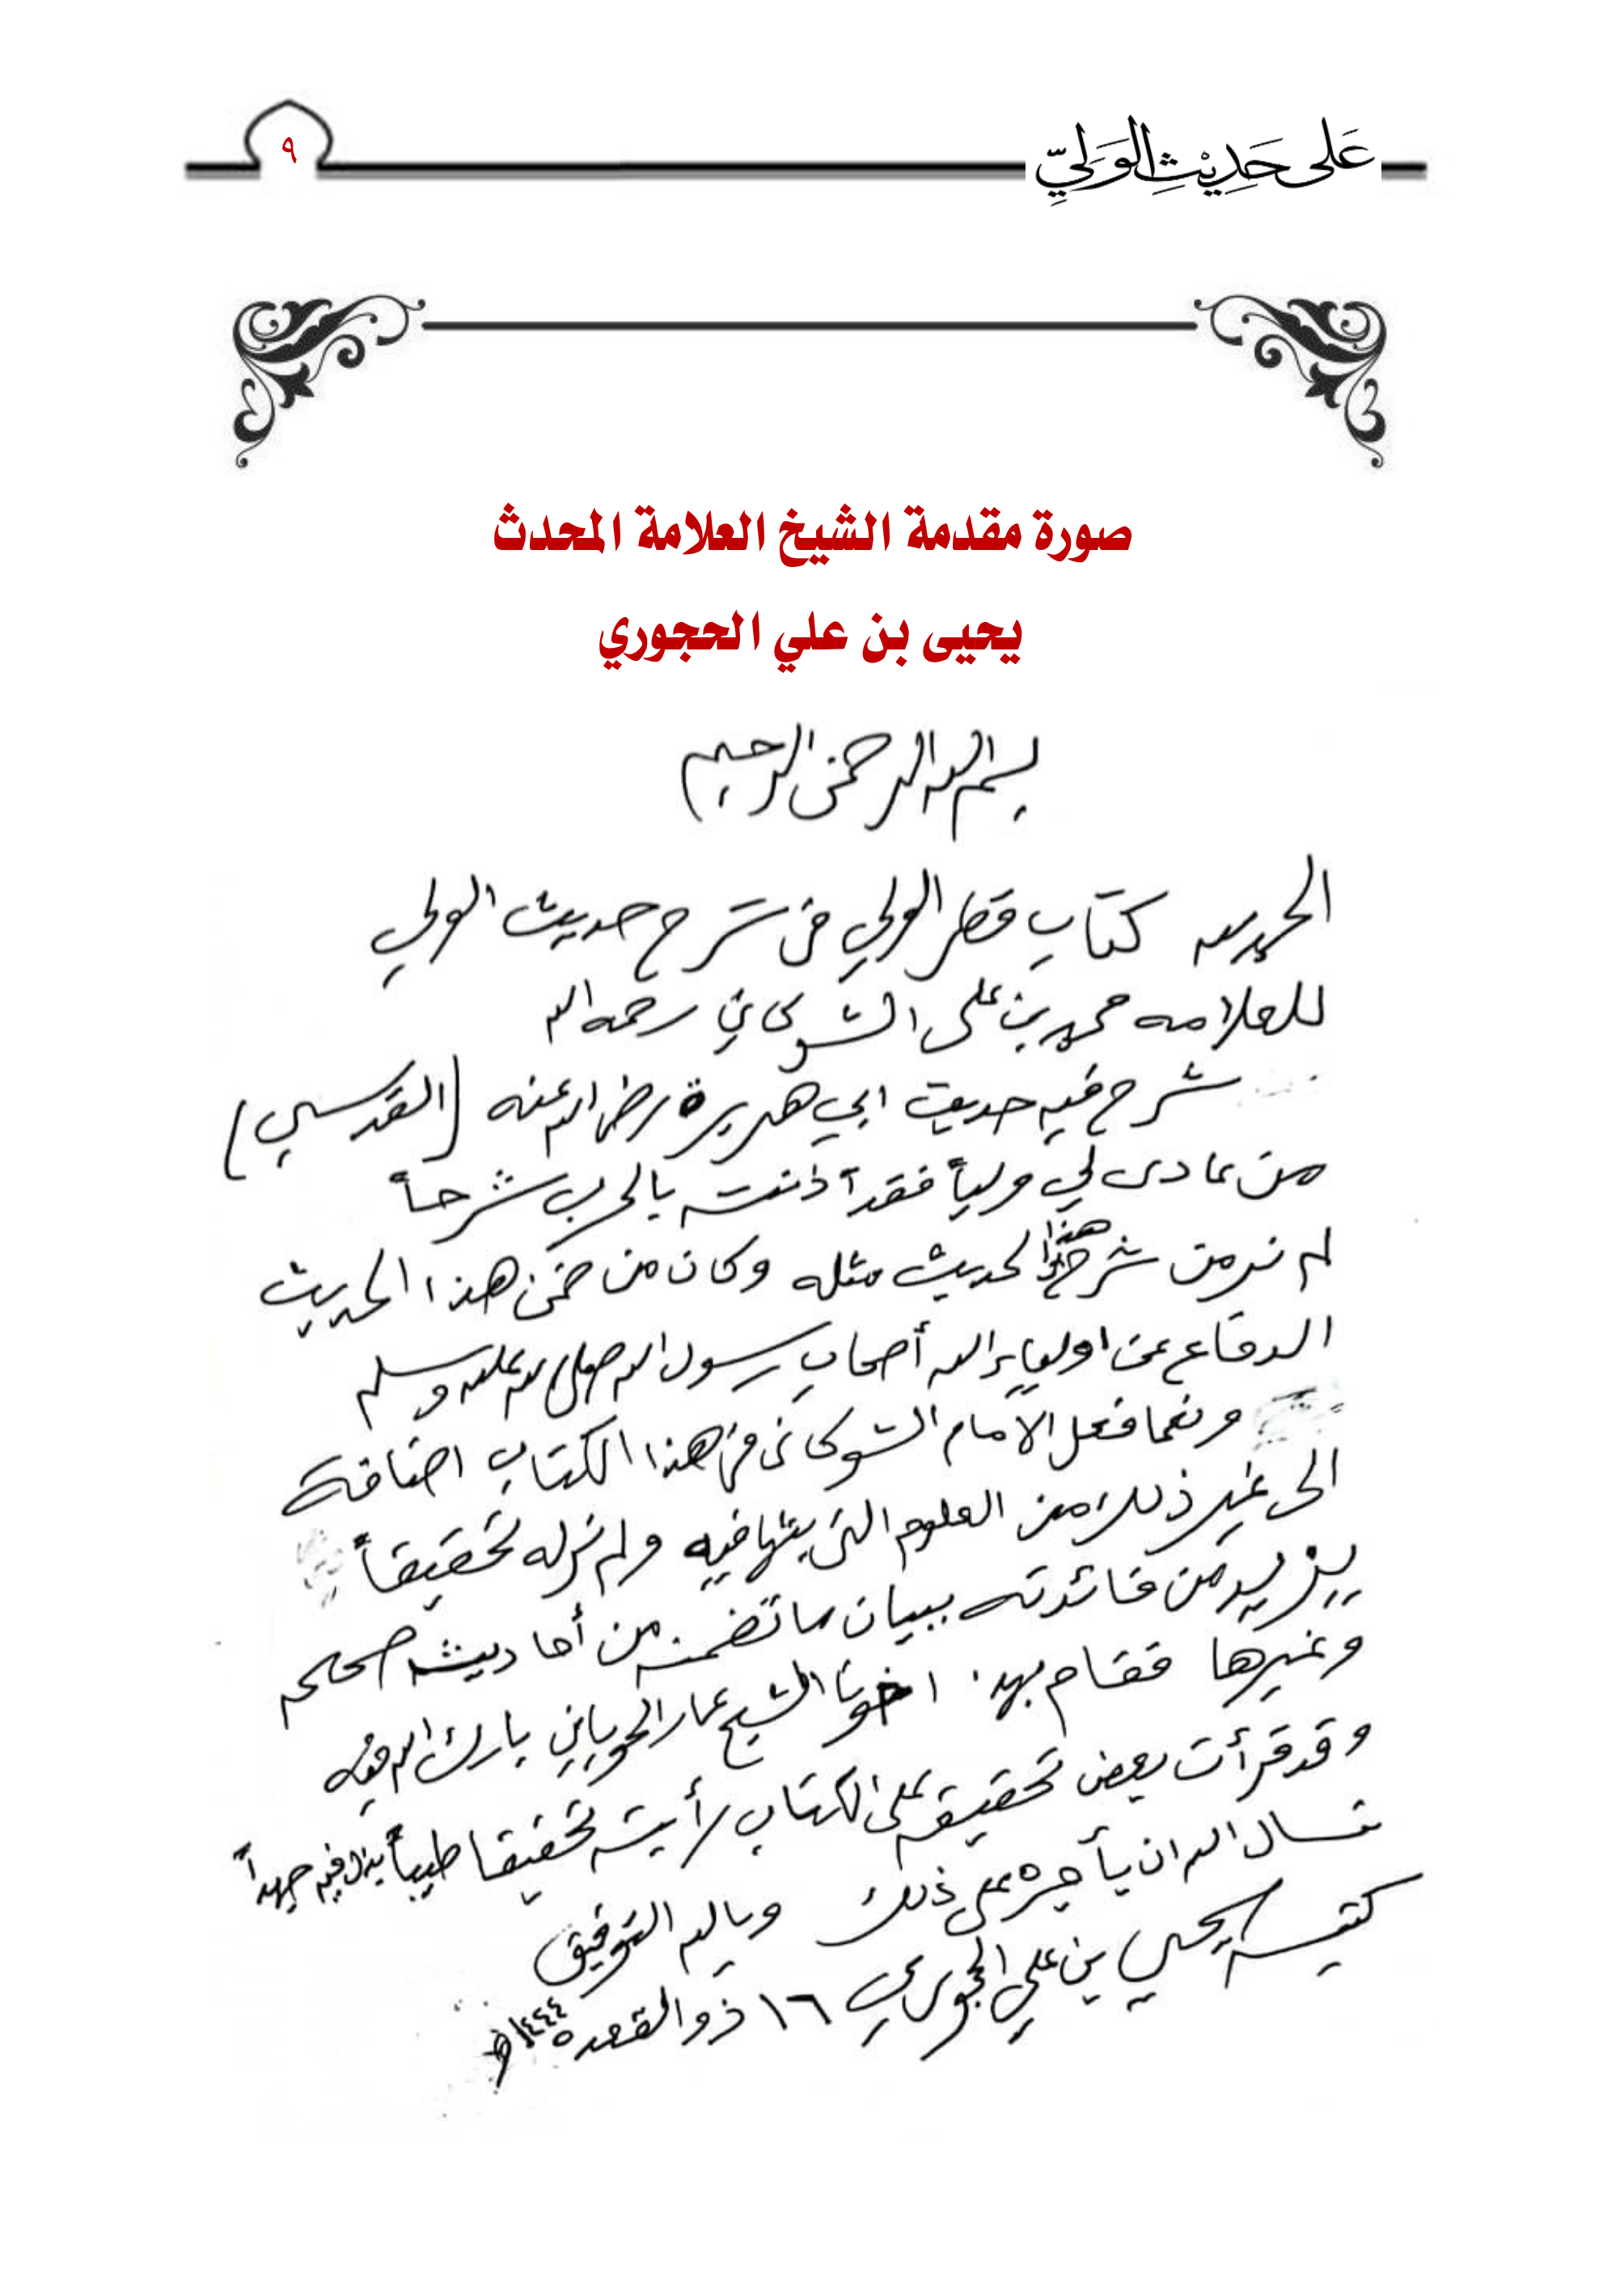 عَلى حَدِيْثِ الوَلِيِّ
٩
صورة مقدمة الشيخ العلامة المحدث
يحيى بن علي الحجوري
بسم الله الرحمن الرحيم
الحمد لله كتاب قطر الولي في شرح حديث الولي
للعلامه محمد بن على الشوكاني رحمه الله
شرح فيه حديث ابي هريرة رضي الله عنه (القدسي)
من عادى لي ولياً فقد آذنته بالحرب شرحاً
لم نر من شرح هذا الحديث مثله وكان من ضمن هذا الحديث
الدفاع عن اولياء الله أصحاب رسول الله صلى الله عليه وسلم
ونعما فعل الامام الشوكاني في هذا الكتاب اضافة
الى غير ذلك من العلوم التي بثها فيه ولم نر له تحقيقاً
يزيد من فائدته ببيان ما تضمنه من أحاديث صحيحه
وغيرها فقام بهذا اخونا الشيخ عمار الحوباني بارك الله فيه
وقد قرأت بعض تحقيقه على الكتاب رأيته تحقيقا طيباً بذل فيه جهداً
نسال الله ان يأجره على ذلك وبالله التوفيق
كتبه يحيى بن علي الحجوري ١٦ ذو القعده ١٤٤٤هـ